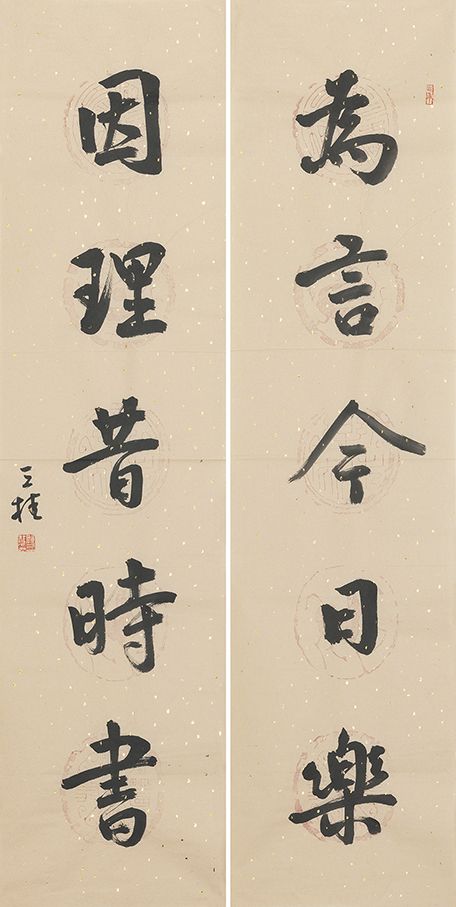 為言今日樂
因理昔時書
三桂